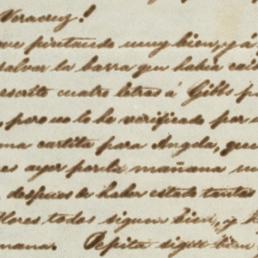 Veracruz!
pintando muy bien, y á
salvar la barra que habia
escrito cuatro letras á Gibbs
pero no lo ha verificado por
una cartita para Angela, que
es ayer por la mañana
despues de haber estado tantas
Flores todos siguen bien, y
mana. Pepita sigue bien